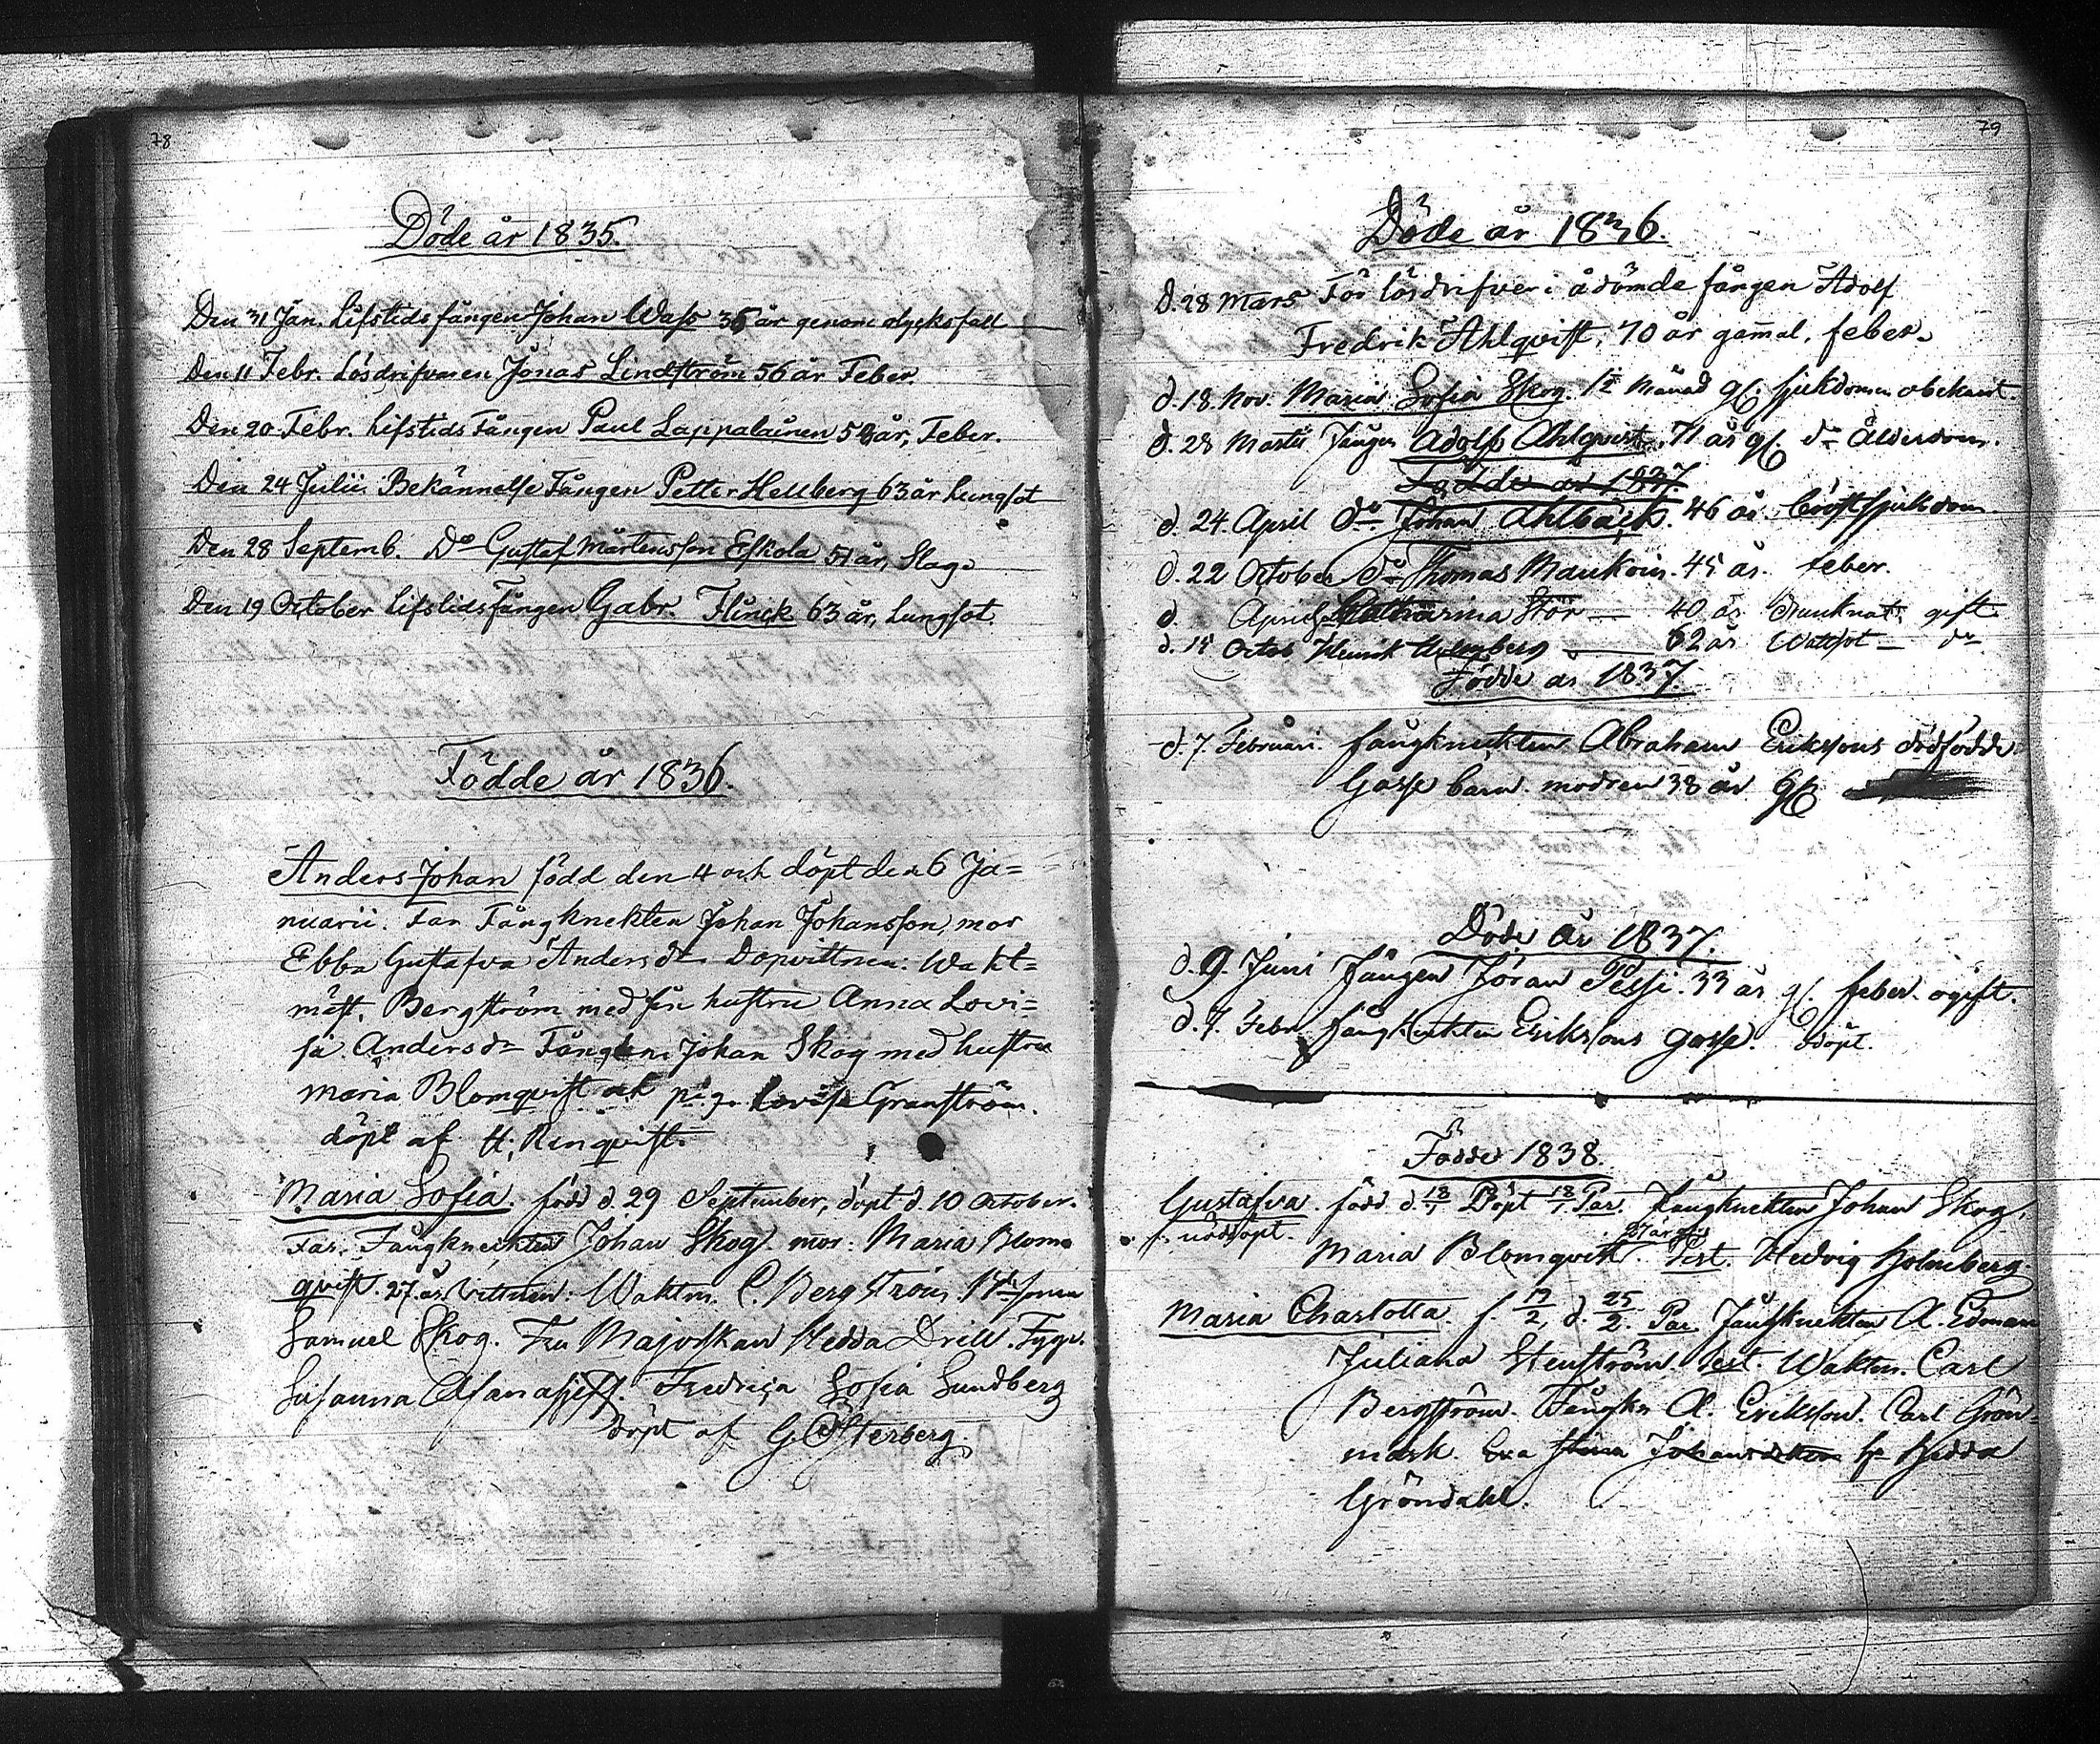 78
Döde år 1835.
Den 31 Jan. Lifstids fången Johan Wass 36 år genom olycksfall
Den 11 Febr. Lösdrifvaren Jonas Lindström 56 år Feber.
Den 20 Febr. Lifstids Fången Paul Lappalainen 58 år, Feber.
Den 24 Julii Bekännelse Fången Petter Hellberg 63 år Lungsot
Den 28 Septemb. Do Gustaf Mårtensson Eskola 51 år, Slag.
Den 19 October Lifstidsfången Gabr. Flinck 63 år, Lungsot.
Födde år 1836.
Anders Johan född den 4 och döpt den 6 Ja=
nuarii. Far Fångknekten Johan Johansson, mor
Ebba Gustafva Andersdr Dopvittnen: Wakt=
mäst. Bergström med sin hustru Anna Lovi=
sa Andersdr Fångkn. Johan Skog med hustru
Maria Blomqvist och pig. Lovisa Granström.
döpt af H. Renqvist.
Maria Sofia. född d. 29 September, döpt d. 10 October.
Far. Fångkneckten Johan Skog. mor: Maria Blom
qvist. 27. år. Vittnen: Waktm. C. Bergström.
Samuel Skog. Fru Majorskan Hedda Drill.
Susanna Fredrica Sofia Sundberg
Döpt af G. Österberg.
79
Döde år 1836.
D. 28 Mars För lösdrifveri ådömde fången Adolf
Fredrik Ahlqvist, 70 år gamal. feber.
d. 18. Nov. Maria Sofia Skog. 1½ Månad gl. sjukdomen obekant.
d. 28 Martii Fången Adolf Ahlqvist. 71 år gl. do Ålderdom.
Födde år 1837
d. 24. April do Johan Ahlbäck. 46 år. bröstsjukdom.
d. 22 October do Thomas Maukoin. 45 år. feber.
d. April Catharina Stör — 40 år drunknat. gift.
d. 15 Octob Henrik Holmberg — 62 år Wattsot — do
Födde år 1837.
d. 7. Februari. fångknekten Abraham Erikssons dödfödde
Gosse barn. modren 38 år gl.
Döde år 1837.
d. 9. Juni Fången Jöran Pessi. 33 år gl. feber. ogift.
d. 7. Febr. fångknekten Erikssons gosse. odöpt.
Födde 1838
Gustafva född d. 18/1 Döpt 18/1 Par. Fångknekten Johan Skog,
nöddöpt.
Maria Blomqvist. Test. Hedvig Holmberg.
Maria Charlotta. f. 17/2, d. 25/2. Par. Fångknekten A. Edman
Juliana Stenström. Test. Waktm. Carl
Bergström. Fångkn A. Eriksson. Carl Grön=
mark. Eva Stina Johansdotter Hedda
Gröndahl.